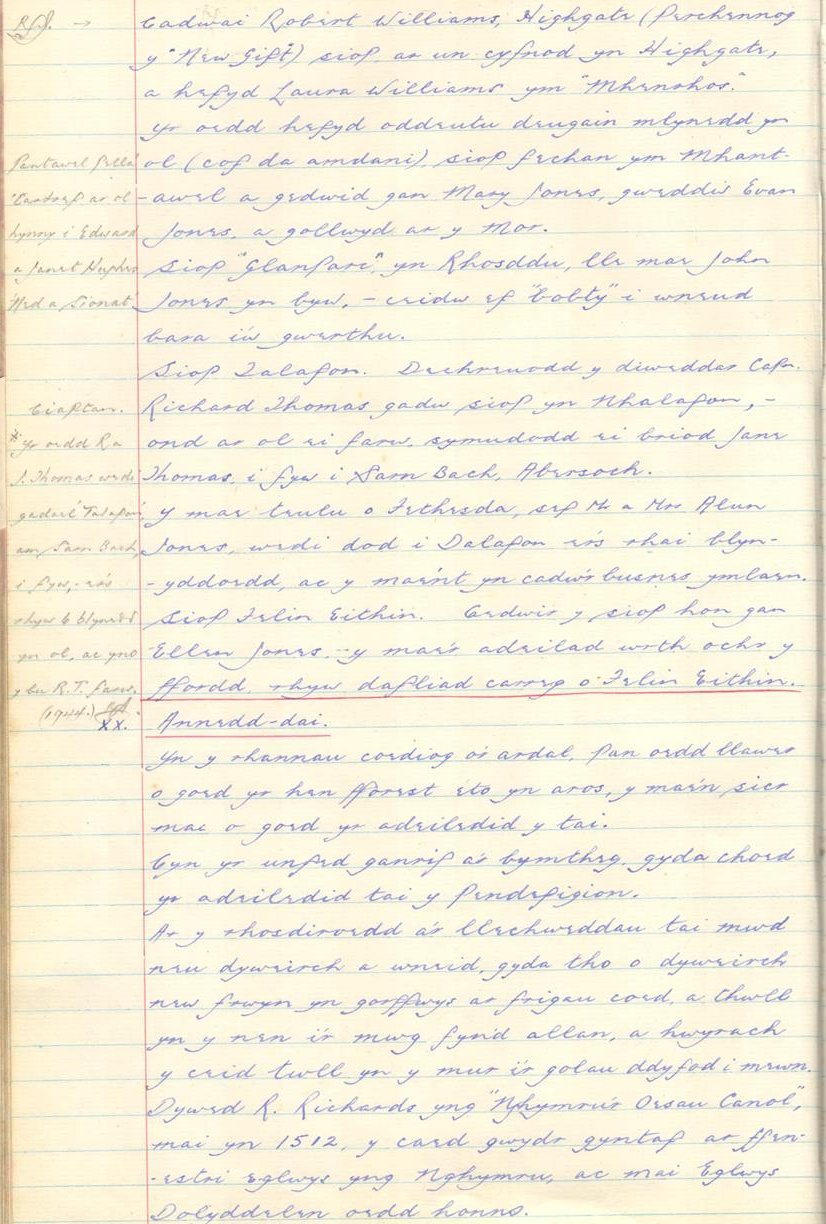 R.J. → Cadwai Robert Williams, Highgate (perchennog
y "New Gift") siop, ar un cyfnod yn Highgate,
a hefyd Laura Williams ym "Mhenrhos".
Yr oedd hefyd oddeutu deugain mlynedd yn
ol (cof da amdani), siop fechan ym Mhant-
-awel a gedwid gan Mary Jones, gweddw Evan
Jones, a gollwyd ar y Mor.
Siop "Glanfari", yn Rhosddu, lle mae John
Jones yn byw, - ceidw ef "bobty" i wneud
bara i'w gwerthu.
Siop Talafon. Dechreuodd y diweddar Capn.
Richard Thomas gadw siop yn Nhalafon, -
ond ar ol ei farw, symudodd ei briod Jane
Thomas, i fyw i Sarn Bach, Abersoch.
Y mae teulu o Fethesda, sef Mr a Mrs Alun
Jones, wedi dod i Dalafon ers rhai blyn-
-yddoedd, ac y maent yn cadw'r busnes ymlaen.
Siop Felin Eithin. Cedwir y siop hon gan
Ellen Jones, - y mae'r adeilad wrth ochr y
ffordd, rhyw dafliad carreg o Felin Eithin.
Pantawel
Cartref ar ol
hynny i Edward
a Janet Hughes
Ned a Sionat
Ciaptan.
* Yr oedd Ra
J. Thomas wedi
gadael Talafon
am Sarn Bach,
i fyw, - ers
rhyw 6 blynedd
yn ol, ac yno
y bu R.T. farw.
(1944.)
XX. Annedd-dai.
Yn y rhannau coediog o'r ardal, pan oedd llawer
o goed yr hen fforest eto yn aros, y mae'n sicr
mai o goed yr adeiledid y tai.
Cyn yr unfed ganrif a'r bymtheg, gyda choed
yr adeiledid tai y Pendefigion.
Ar y rhosdiroedd a'r llechweddau tai mwd
neu dyweirch a wneid, gyda tho o dyweirch
neu frwyn yn gorffwys ar frigau coed, a thwll
yn y nen i'r mwg fynd allan, a hwyrach
y ceid twll yn y mur i'r golau ddyfod i mewn.
Dywed R. Richards yng "Nghymru'r Oesau Canol",
mai yn 1512, y caed gwydr gyntaf ar ffen-
-estri eglwys yng Nghymru, ac mai Eglwys
Dolyddelen oedd honno.